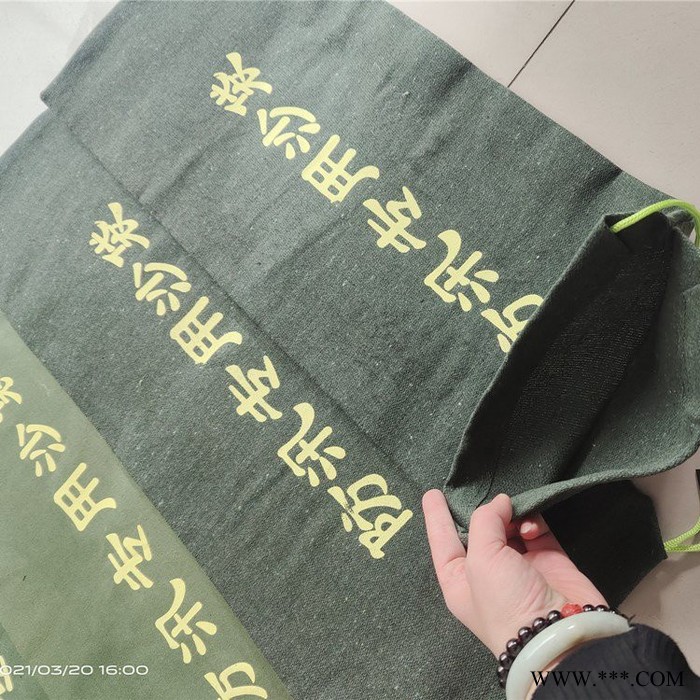 防汛专用沙袋
防汛专用沙袋
防汛专用沙袋
021/03/20 16:00
WWW.***.COM